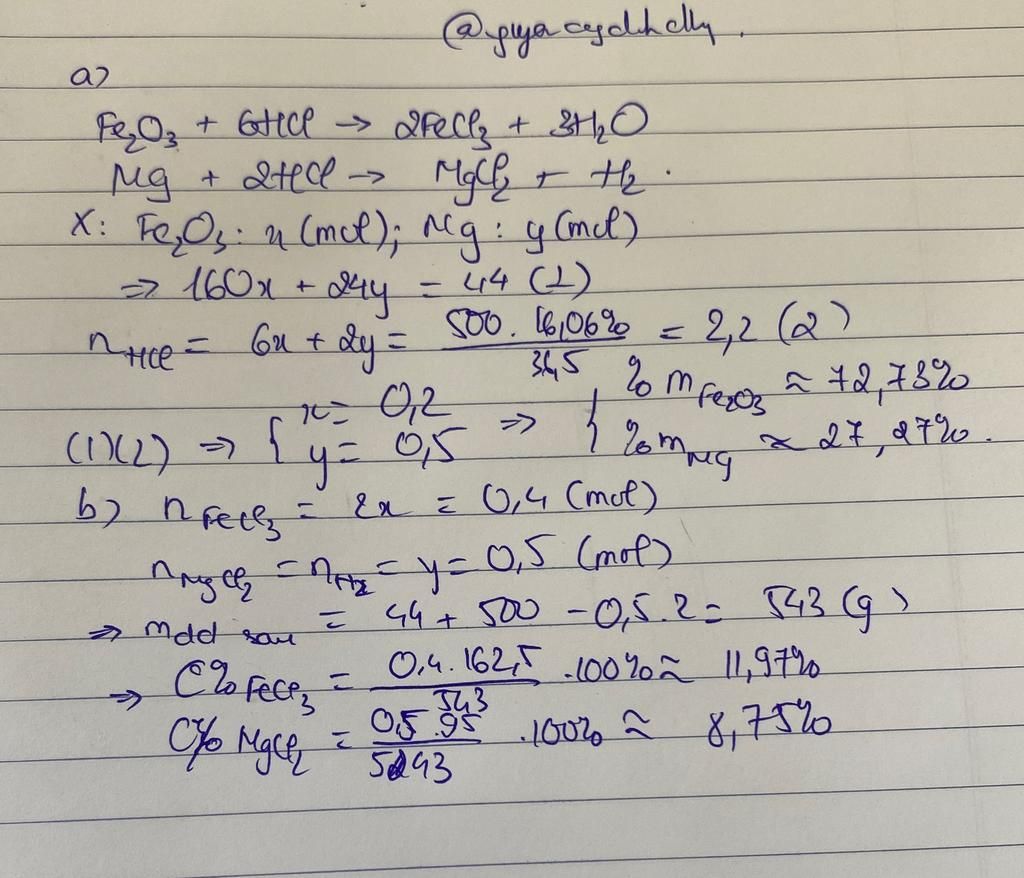 a)
Fe₂O₃ + 6HCl → 2FeCl₃ + 3H₂O
Mg + 2HCl → MgCl₂ + H₂.
X: Fe₂O₃: x (mol); Mg: y (mol)
⇒ 160x + 24y = 44 (1)
n_HCl = 6x + 2y = (500 . 16,06%)/(36,5) = 2,2 (2)
(1)(2) ⇒ { x = 0,2 ; y = 0,5 ⇒ { %m_Fe₂O₃ ≈ 72,73% ; %m_Mg ≈ 27,27%.
b) n_FeCl₃ = 2x = 0,4 (mol)
n_MgCl₂ = n_H₂ = y = 0,5 (mol)
⇒ mdd sau = 44 + 500 - 0,5.2 = 543 (g)
⇒ C%FeCl₃ = (0,4.162,5)/(543) .100% ≈ 11,97%
C% MgCl₂ = (0,5.95)/(543) .100% ≈ 8,75%